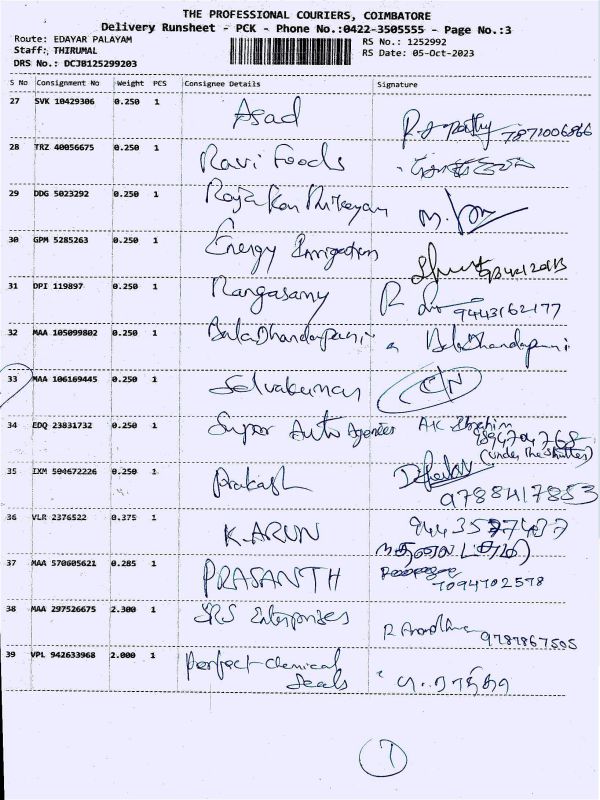 THE PROFESSIONAL COURIERS, COIMBATORE
Delivery Runsheet - PCK - Phone No.:0422-3505555 - Page No.:3
Route: EDAYAR PALAYAM
RS No.: 1252992
Staff: THIRUMAL
RS Date: 05-Oct-2023
DRS No.: DCJB125299203
S No Consignment No Weight PCS Consignee Details Signature
27 SVK 10429306 0.250 1 Asad 7871006866
28 TRZ 40056675 0.250 1 Ravi Foods
29 DDG 5023292 0.250 1 Raja
30 GPM 5285263 0.250 1 Energy Irrigation
31 DPI 119897 0.250 1 Rangasamy 9443162177
32 MAA 105099802 0.250 1 BalaDhandapani BalaDhandapani
33 MAA 106169445 0.250 1 Selvakumar C/N
34 EDQ 23831732 0.250 1 Super Auto Agencies A.K Ibrahim
(under the shutter)
35 IXM 504672226 0.250 1 Prakash
9788417853
36 VLR 2376522 0.375 1 K.ARUN
37 MAA 570605621 0.285 1 PRASANTH
7094702578
38 MAA 297526675 2.300 1 SRS Enterprises 9787867505
39 VPL 942633968 2.000 1 Perfect Chemical
Seals